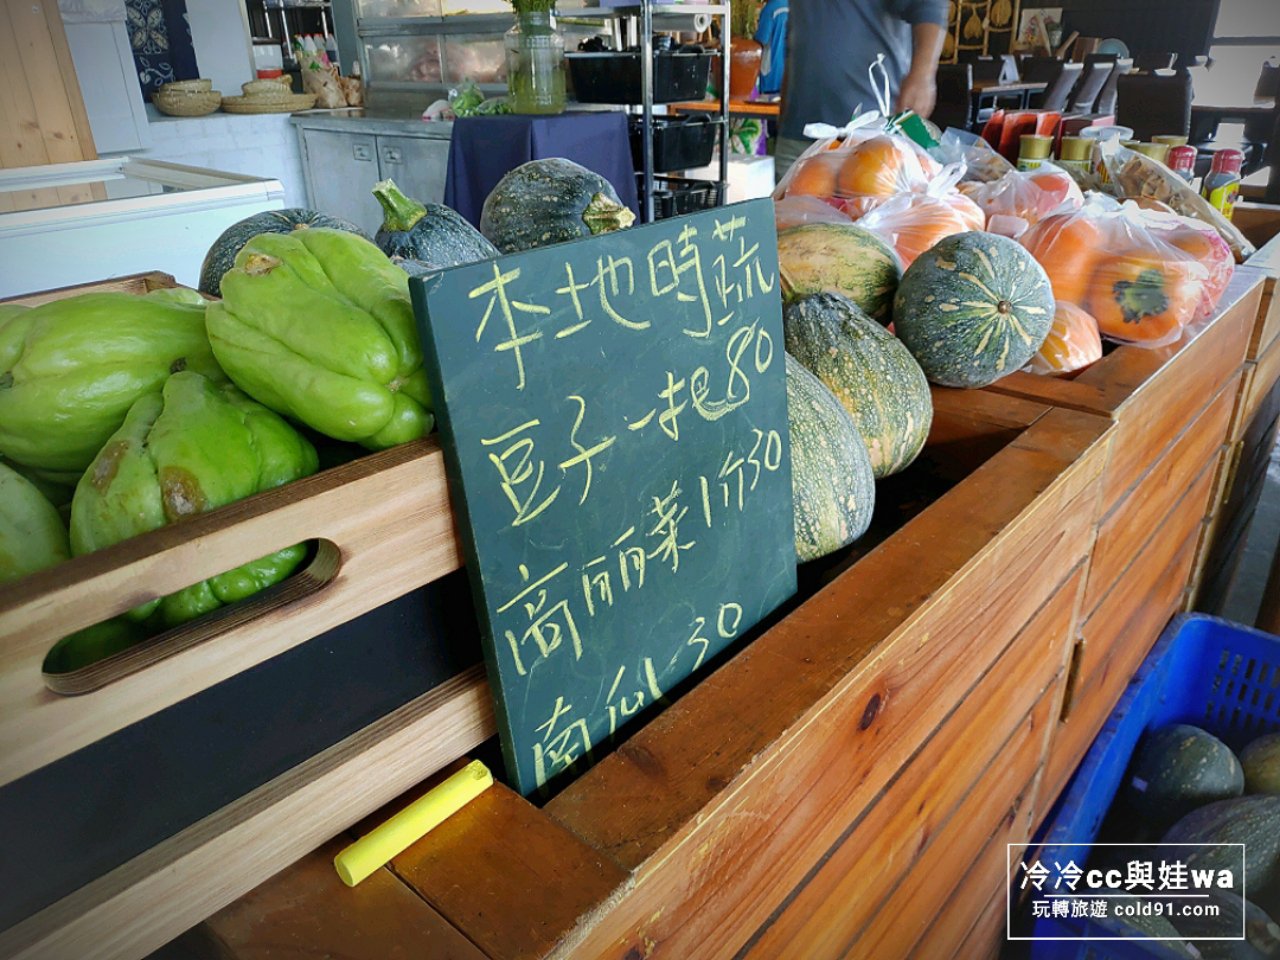 本地時蔬
豆子一把80
高丽菜1斤30
南瓜30
冷冷cc與娃wa
玩轉旅遊 cold91.com